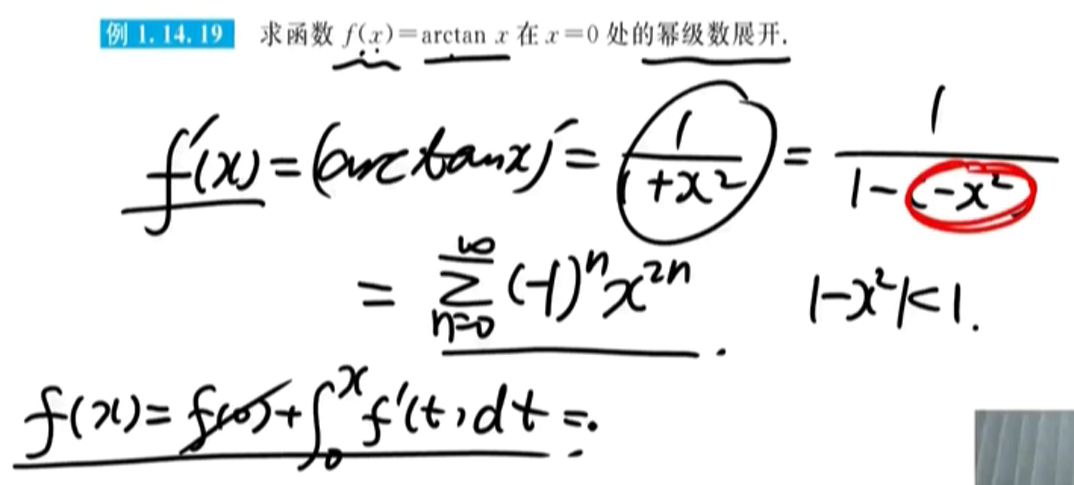 例 1.14.19 求函数 f(x)=arctan x 在 x=0 处的幂级数展开.
f'(x) = (arctanx)' = 1/(1+x²) = 1/(1-(-x²))
= ∑_{n=0}^{∞} (-1)ⁿx²ⁿ. |-x²|<1.
f(x) = f(0) + ∫₀ˣ f'(t)dt =